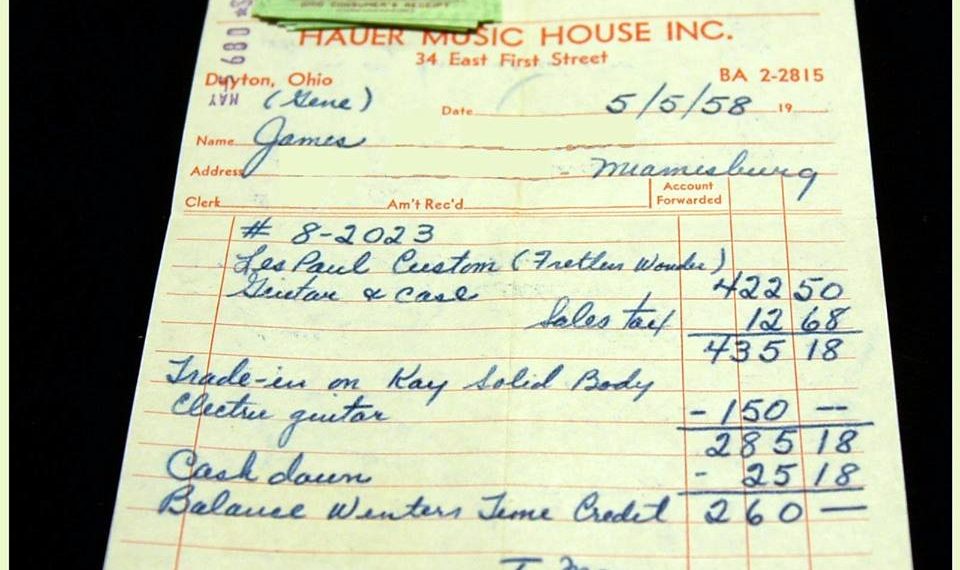 OHIO CONSUMER'S RECEIPT
HAUER MUSIC HOUSE INC.
34 East First Street
Dayton, Ohio BA 2-2815
MAY 5 1958
(Gene) Date 5/5/58 19
Name James
Address Miamesburg
Clerk Am't Rec'd Account Forwarded
# 8-2023
Les Paul Custom (Fretless Wonder)
Guitar & Case 422 50
Sales tax 12 68
435 18
Trade-in on Kay Solid Body
Electric guitar - 150 --
285 18
Cash down - 25 18
Balance Winters Time Credit 260 —